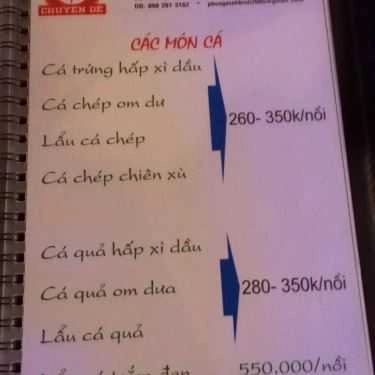 CHUYÊN DÊ
CÁC MÓN CÁ
Cá trứng hấp xì dầu
Cá chép om dư
Lẩu cá chép
Cá chép chiên xù
260- 350k/nồi
Cá quả hấp xì dầu
Cá quả om dưa
Lẩu cá quả
280- 350k/nồi
550,000/nồi